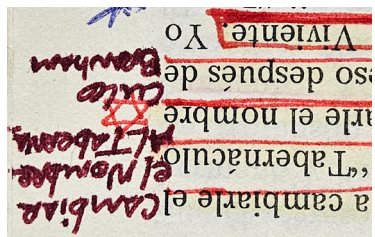 a cambiarle el
“Tabernáculo
arle el nombre
eso después de
Viviente. Yo
Cambiar
el Nombre
AL Tabern
culo